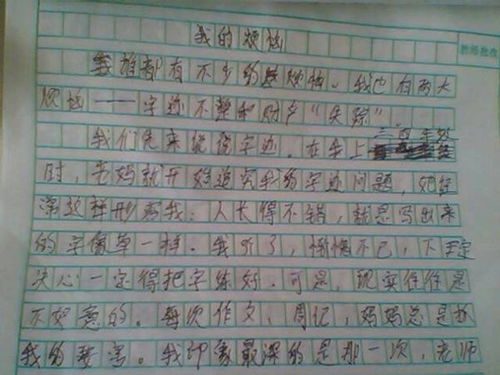 我的烦恼
谁都有不少的烦恼。我也有两大
烦恼——字迹不整和财产“失踪”
我们先来说说字迹。在我上三年级
时，老妈就开始追究我的字迹问题，她经
常这样形容我：人长得不错，就是写出来
的字像草一样。我听了，惭愧不已，下定
决心一定得把字练好。可是，现实往往是
不如意的。每次作文，周记，妈妈总是
我的要害。我印象最深的是那一次，老师